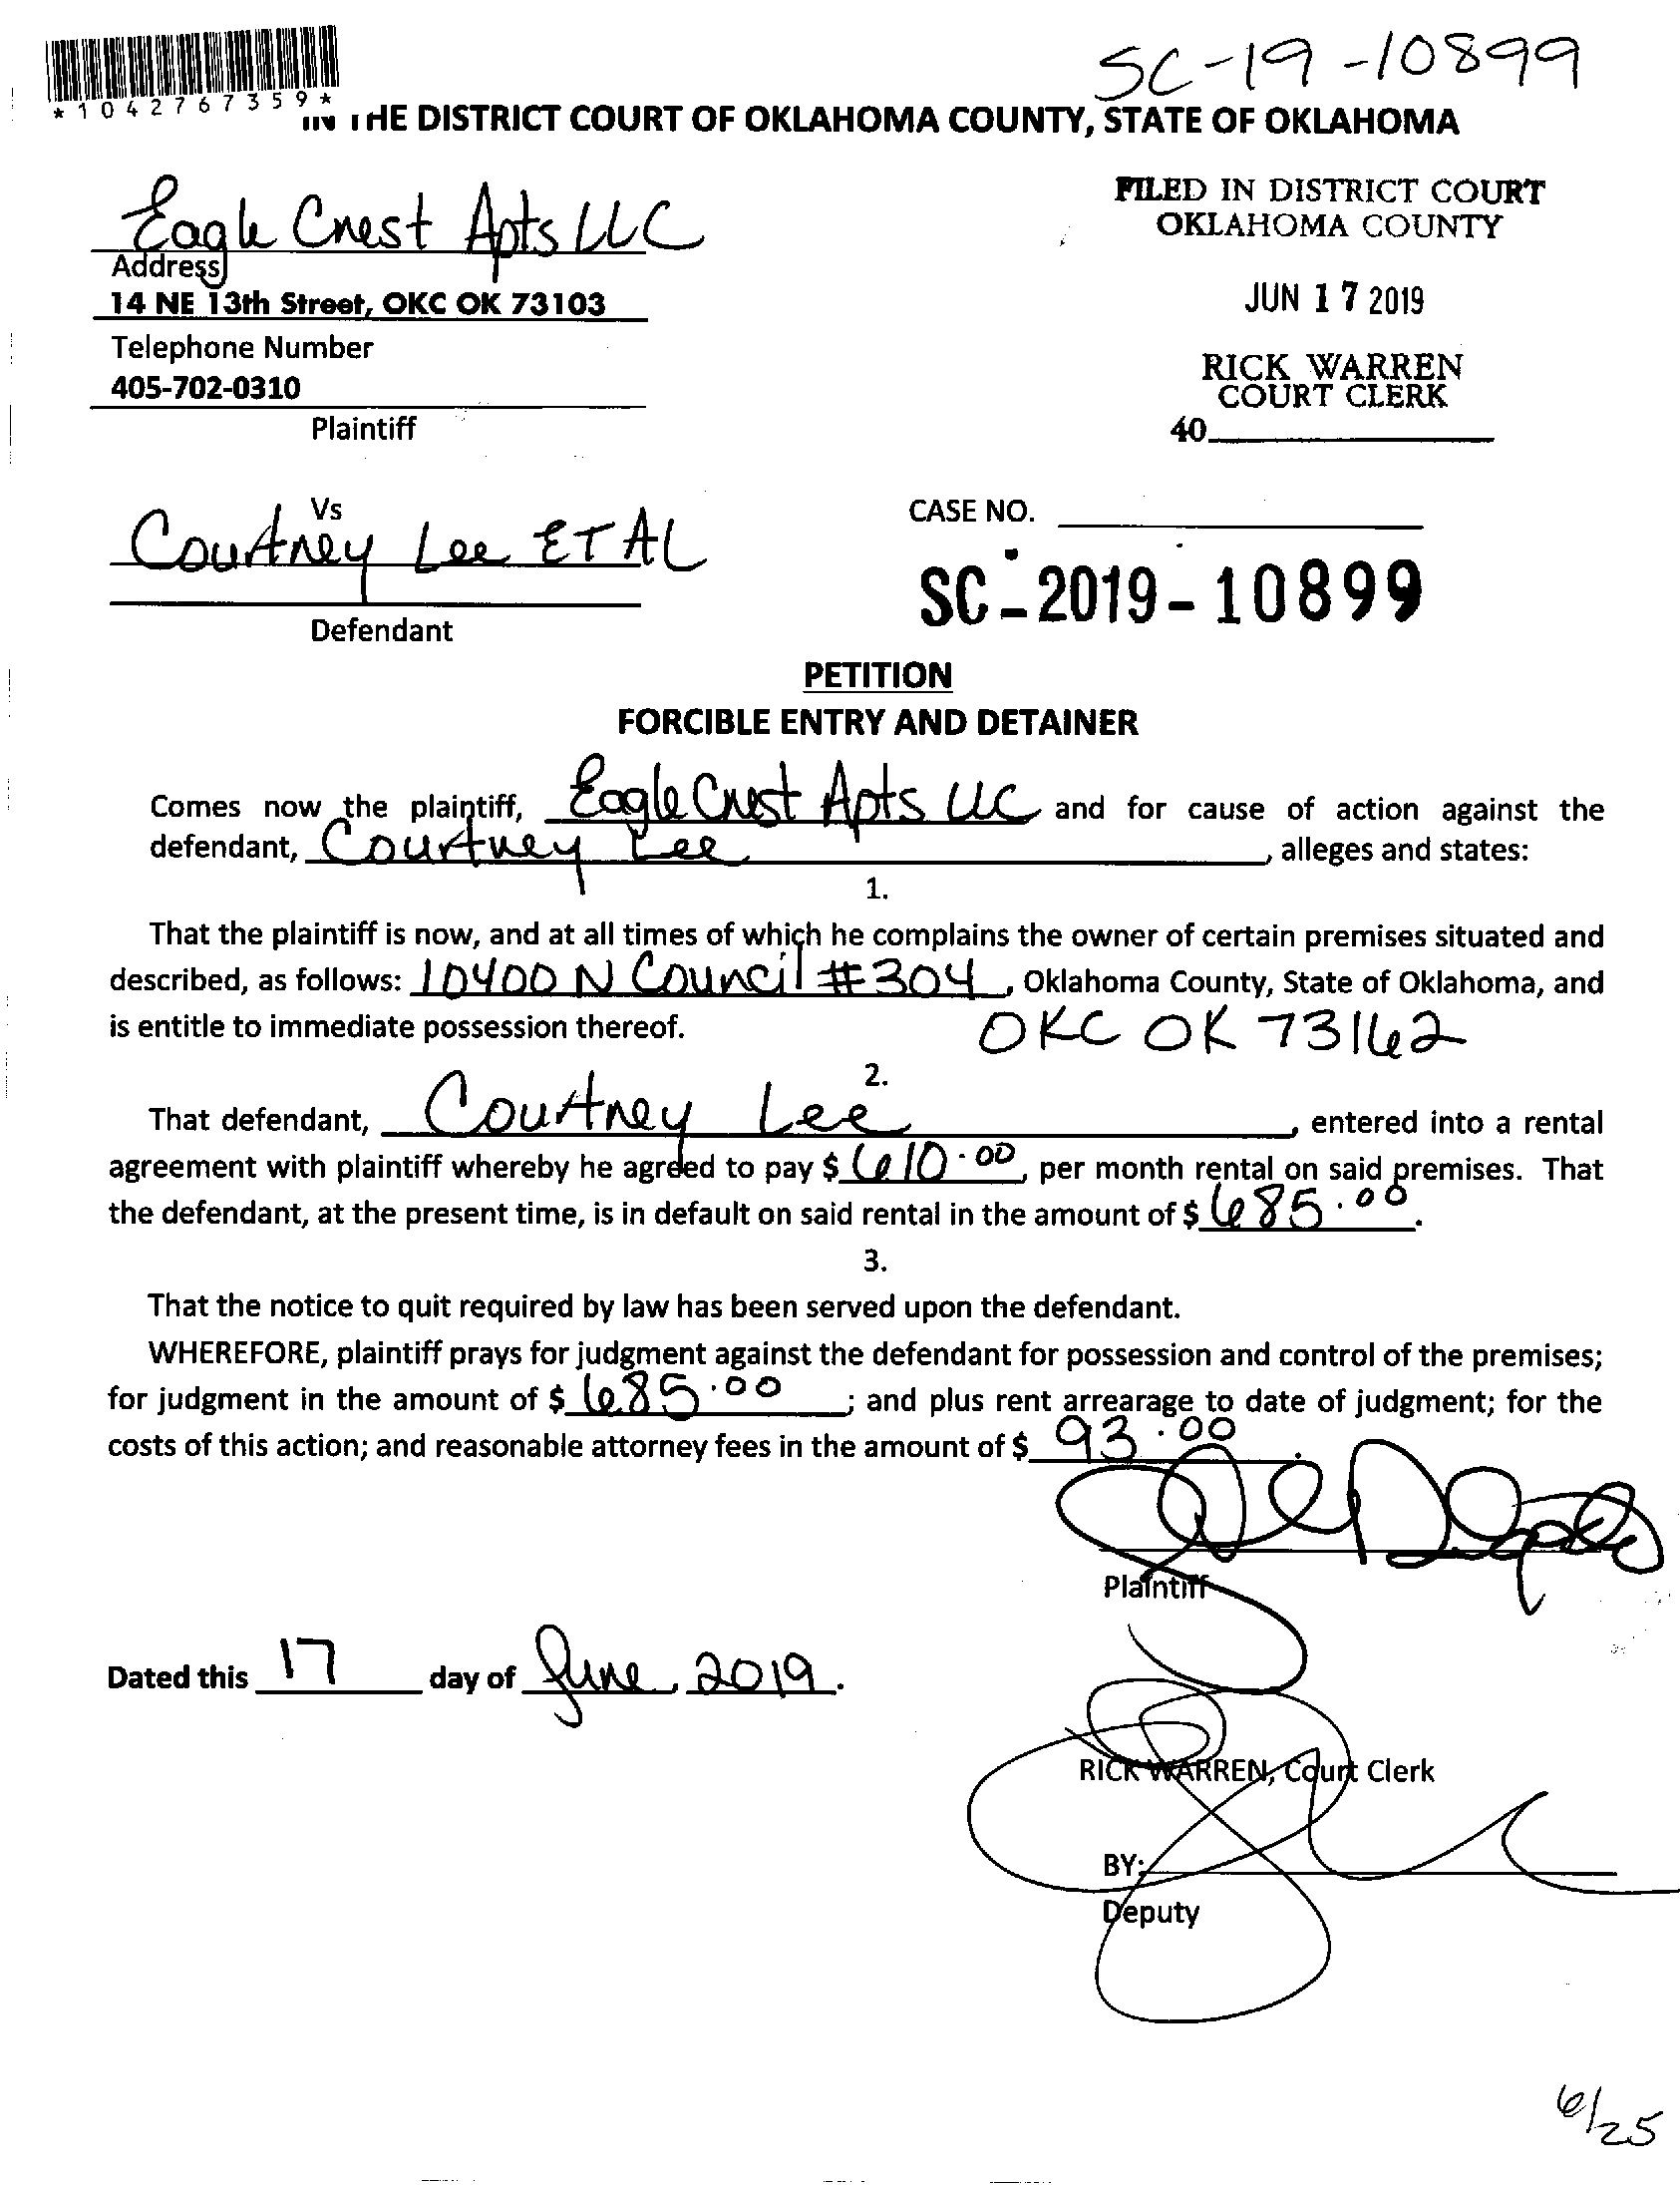 SC-19-10899
*1042767359*
IN THE DISTRICT COURT OF OKLAHOMA COUNTY, STATE OF OKLAHOMA
Eagle Crest Apts LLC
Address
14 NE 13th Street, OKC OK 73103
Telephone Number
405-702-0310
Plaintiff
FILED IN DISTRICT COURT
OKLAHOMA COUNTY
JUN 17 2019
RICK WARREN
COURT CLERK
40
Vs
Courtney Lee ET AL
Defendant
CASE NO.
SC-2019-10899
PETITION
FORCIBLE ENTRY AND DETAINER
Comes now the plaintiff, Eagle Crest Apts LLC and for cause of action against the
defendant, Courtney Lee, alleges and states:
1.
That the plaintiff is now, and at all times of which he complains the owner of certain premises situated and
described, as follows: 10400 N Council #304, Oklahoma County, State of Oklahoma, and
is entitle to immediate possession thereof. OKC OK 73162
2.
That defendant, Courtney Lee, entered into a rental
agreement with plaintiff whereby he agreed to pay $ 610.00, per month rental on said premises. That
the defendant, at the present time, is in default on said rental in the amount of $ 685.00.
3.
That the notice to quit required by law has been served upon the defendant.
WHEREFORE, plaintiff prays for judgment against the defendant for possession and control of the premises;
for judgment in the amount of $ 685.00; and plus rent arrearage to date of judgment; for the
costs of this action; and reasonable attorney fees in the amount of $ 93.00.
Plaintiff
Dated this 17 day of June, 2019.
RICK WARREN, Court Clerk
BY:
Deputy
6/25